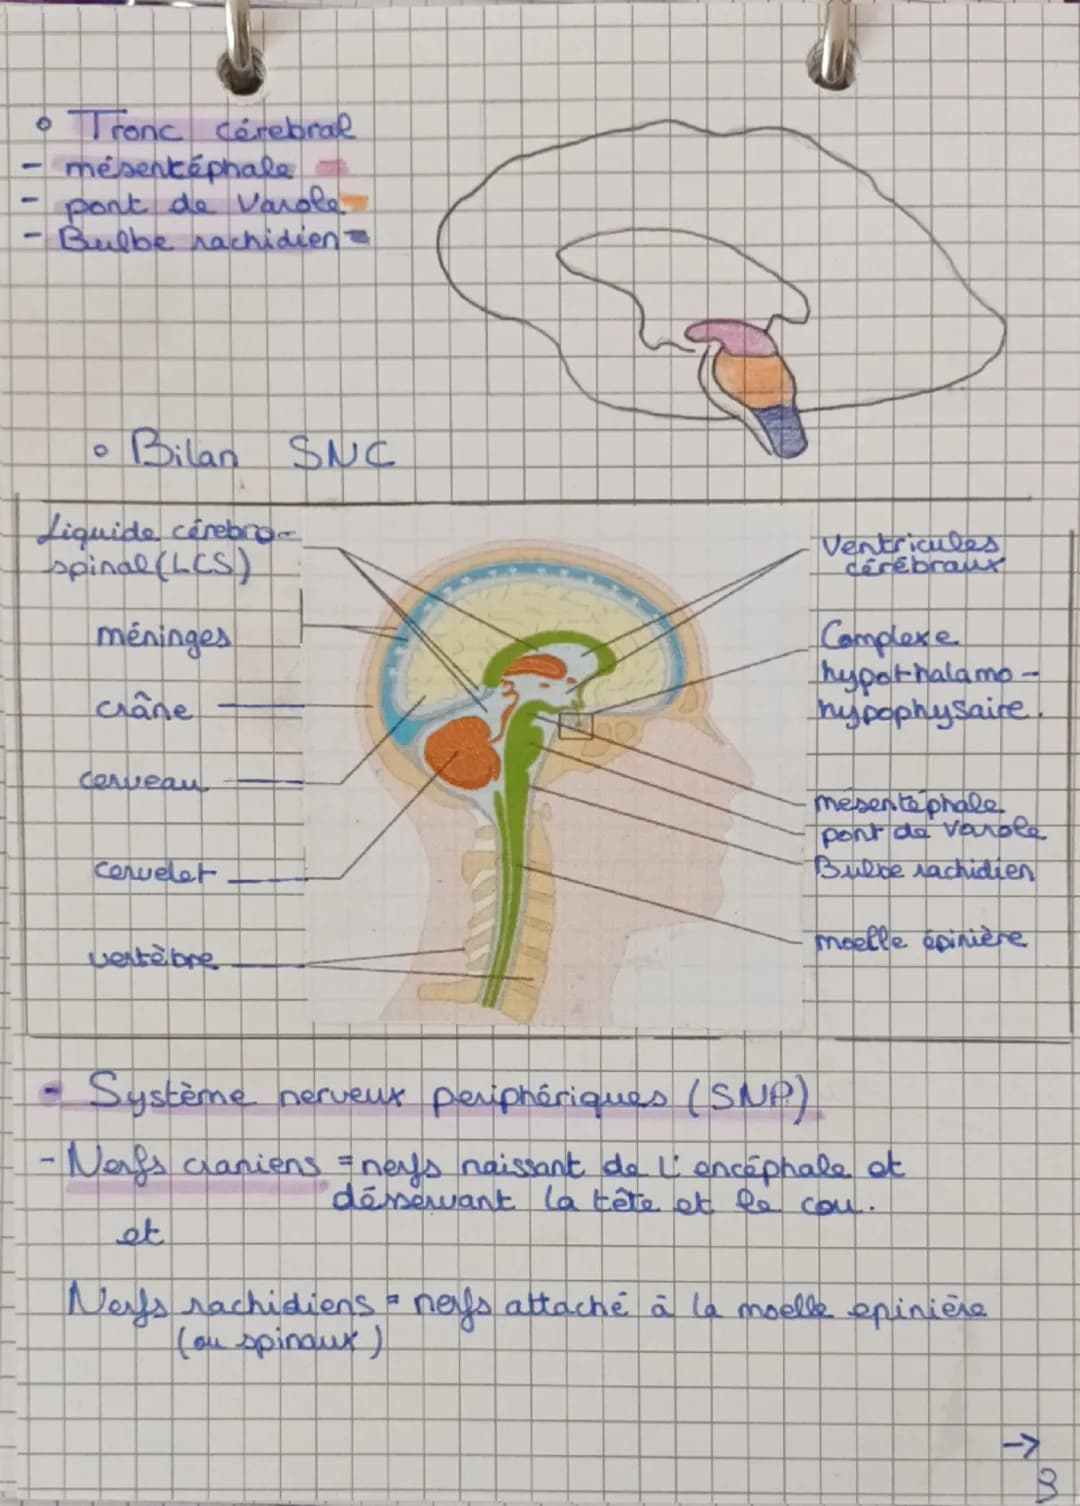 ° Tronc cérébral
- mésencéphale
- pont de Varole
- Bulbe rachidien
° Bilan SNC
Liquide cérébro-
spinal (LCS)
méninges
crâne
cerveau
cervelet
vertèbre
Ventricules
cérébraux
Complexe
hypothalamo-
hypophysaire.
mésencéphale
pont de Varole
Bulbe rachidien
moelle épinière
- Système nerveux periphériques (SNP)
- Nerfs craniens = nerfs naissant de l'encéphale et
désservant la tête et le cou.
et
Nerfs rachidiens = nerfs attaché à la moelle epinière
(ou spinaux)
→
3